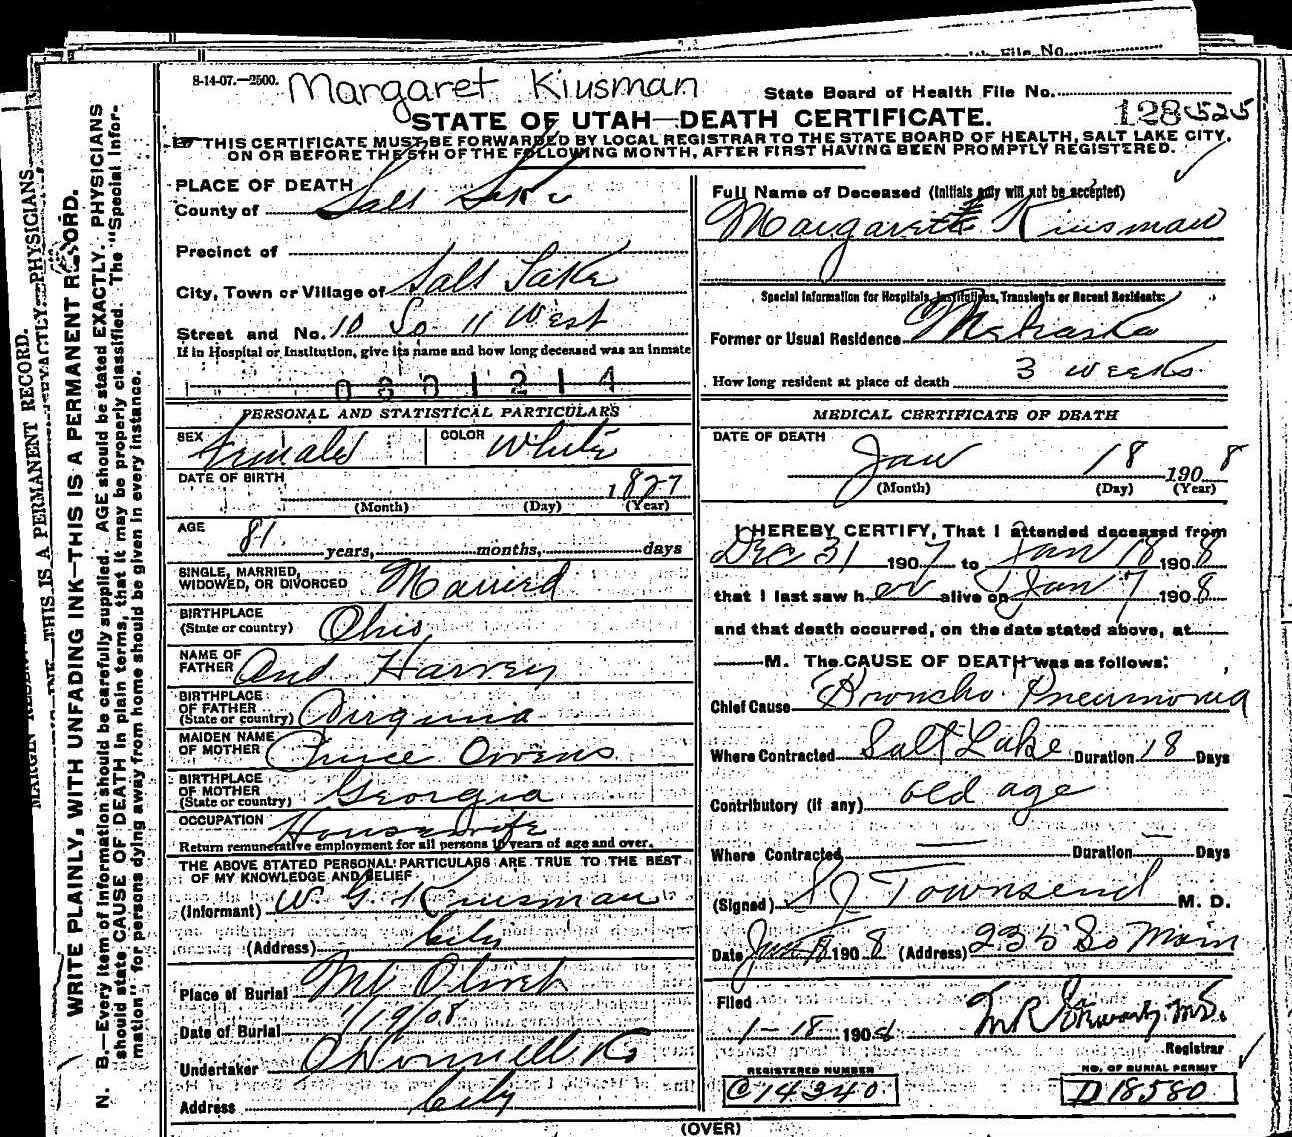 8-14-07.—2500. Margaret Kiusman
State Board of Health File No.
128 525
STATE OF UTAH—DEATH CERTIFICATE.
THIS CERTIFICATE MUST BE FORWARDED BY LOCAL REGISTRAR TO THE STATE BOARD OF HEALTH, SALT LAKE CITY,
ON OR BEFORE THE 5TH OF THE FOLLOWING MONTH, AFTER FIRST HAVING BEEN PROMPTLY REGISTERED.
PLACE OF DEATH
County of Salt Lake
Precinct of
City, Town or Village of Salt Lake
Street and No. 10 So 11 West
If in Hospital or Institution, give its name and how long deceased was an inmate
0801214
PERSONAL AND STATISTICAL PARTICULARS
SEX Female COLOR White
DATE OF BIRTH 1827
(Month) (Day) (Year)
AGE 81 years, months, days
SINGLE, MARRIED,
WIDOWED, OR DIVORCED Married
BIRTHPLACE
(State or country) Ohio
NAME OF
FATHER And Harvey
BIRTHPLACE
OF FATHER
(State or country) Virginia
MAIDEN NAME
OF MOTHER Owens
BIRTHPLACE
OF MOTHER
(State or country) Georgia
OCCUPATION Housewife
Return remunerative employment for all persons 10 years of age and over.
THE ABOVE STATED PERSONAL PARTICULARS ARE TRUE TO THE BEST
OF MY KNOWLEDGE AND BELIEF
(Informant) W. G. Kiusman
(Address) City
Place of Burial Mt Olivet
Date of Burial 1/19/08
Undertaker O'Donnell & Co
Address City
Full Name of Deceased (Initials only will not be accepted)
Margarett Kiusman
Special Information for Hospitals, Institutions, Transients or Recent Residents:
Former or Usual Residence Nebraska
How long resident at place of death 3 weeks
MEDICAL CERTIFICATE OF DEATH
DATE OF DEATH
Jan 18 1908
(Month) (Day) (Year)
I HEREBY CERTIFY, That I attended deceased from
Dec 31 1907 to Jan 18 1908
that I last saw her alive on Jan 7 1908
and that death occurred, on the date stated above, at
M. The CAUSE OF DEATH was as follows:
Chief Cause Broncho Pneumonia
Where Contracted Salt Lake Duration 18 Days
Contributory (if any) old age
Where Contracted — Duration — Days
(Signed) S J Townsend M. D.
Date Jan 18 1908 (Address) 235 So Main
Filed
1-18 1908
Registrar
REGISTERED NUMBER
C 14340
NO. OF BURIAL PERMIT
D 18580
(OVER)
MARGIN RESERVED
THIS IS A PERMANENT RECORD.
WRITE PLAINLY, WITH UNFADING INK—THIS IS A PERMANENT RECORD.
N. B.—Every item of information should be carefully supplied. AGE should be stated EXACTLY. PHYSICIANS
should state CAUSE OF DEATH in plain terms, that it may be properly classified. The "Special Infor-
mation" for persons dying away from home should be given in every instance.